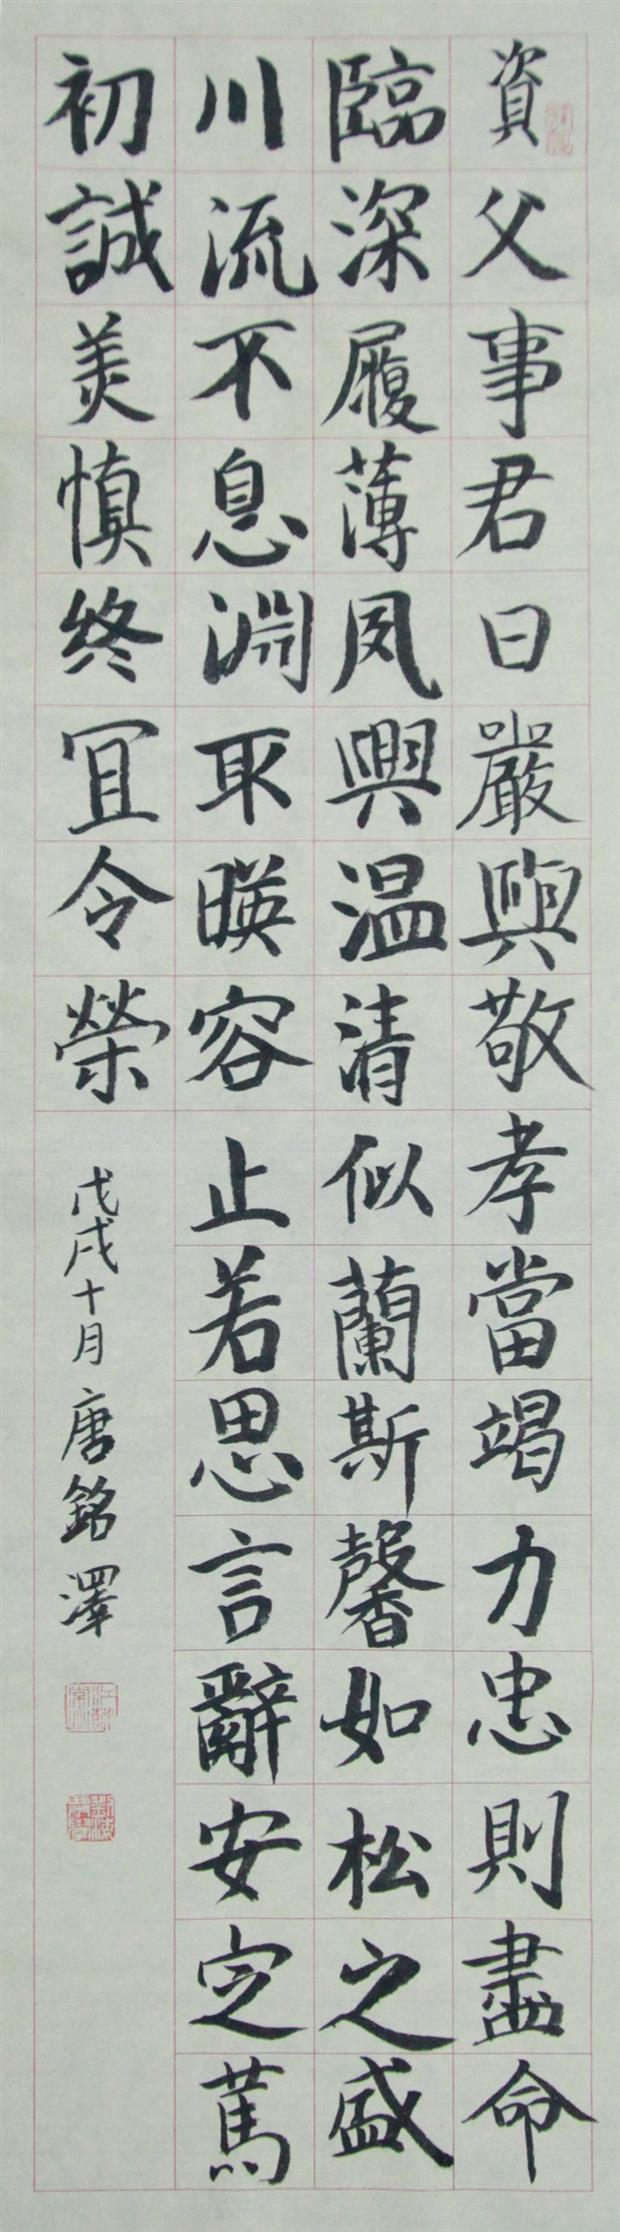 資父事君曰嚴與敬孝當竭力忠則盡命
臨深履薄夙興温清似蘭斯馨如松之盛
川流不息淵取暎容止若思言辭安定篤
初誠美慎終宜令榮
戊戌十月唐銘澤